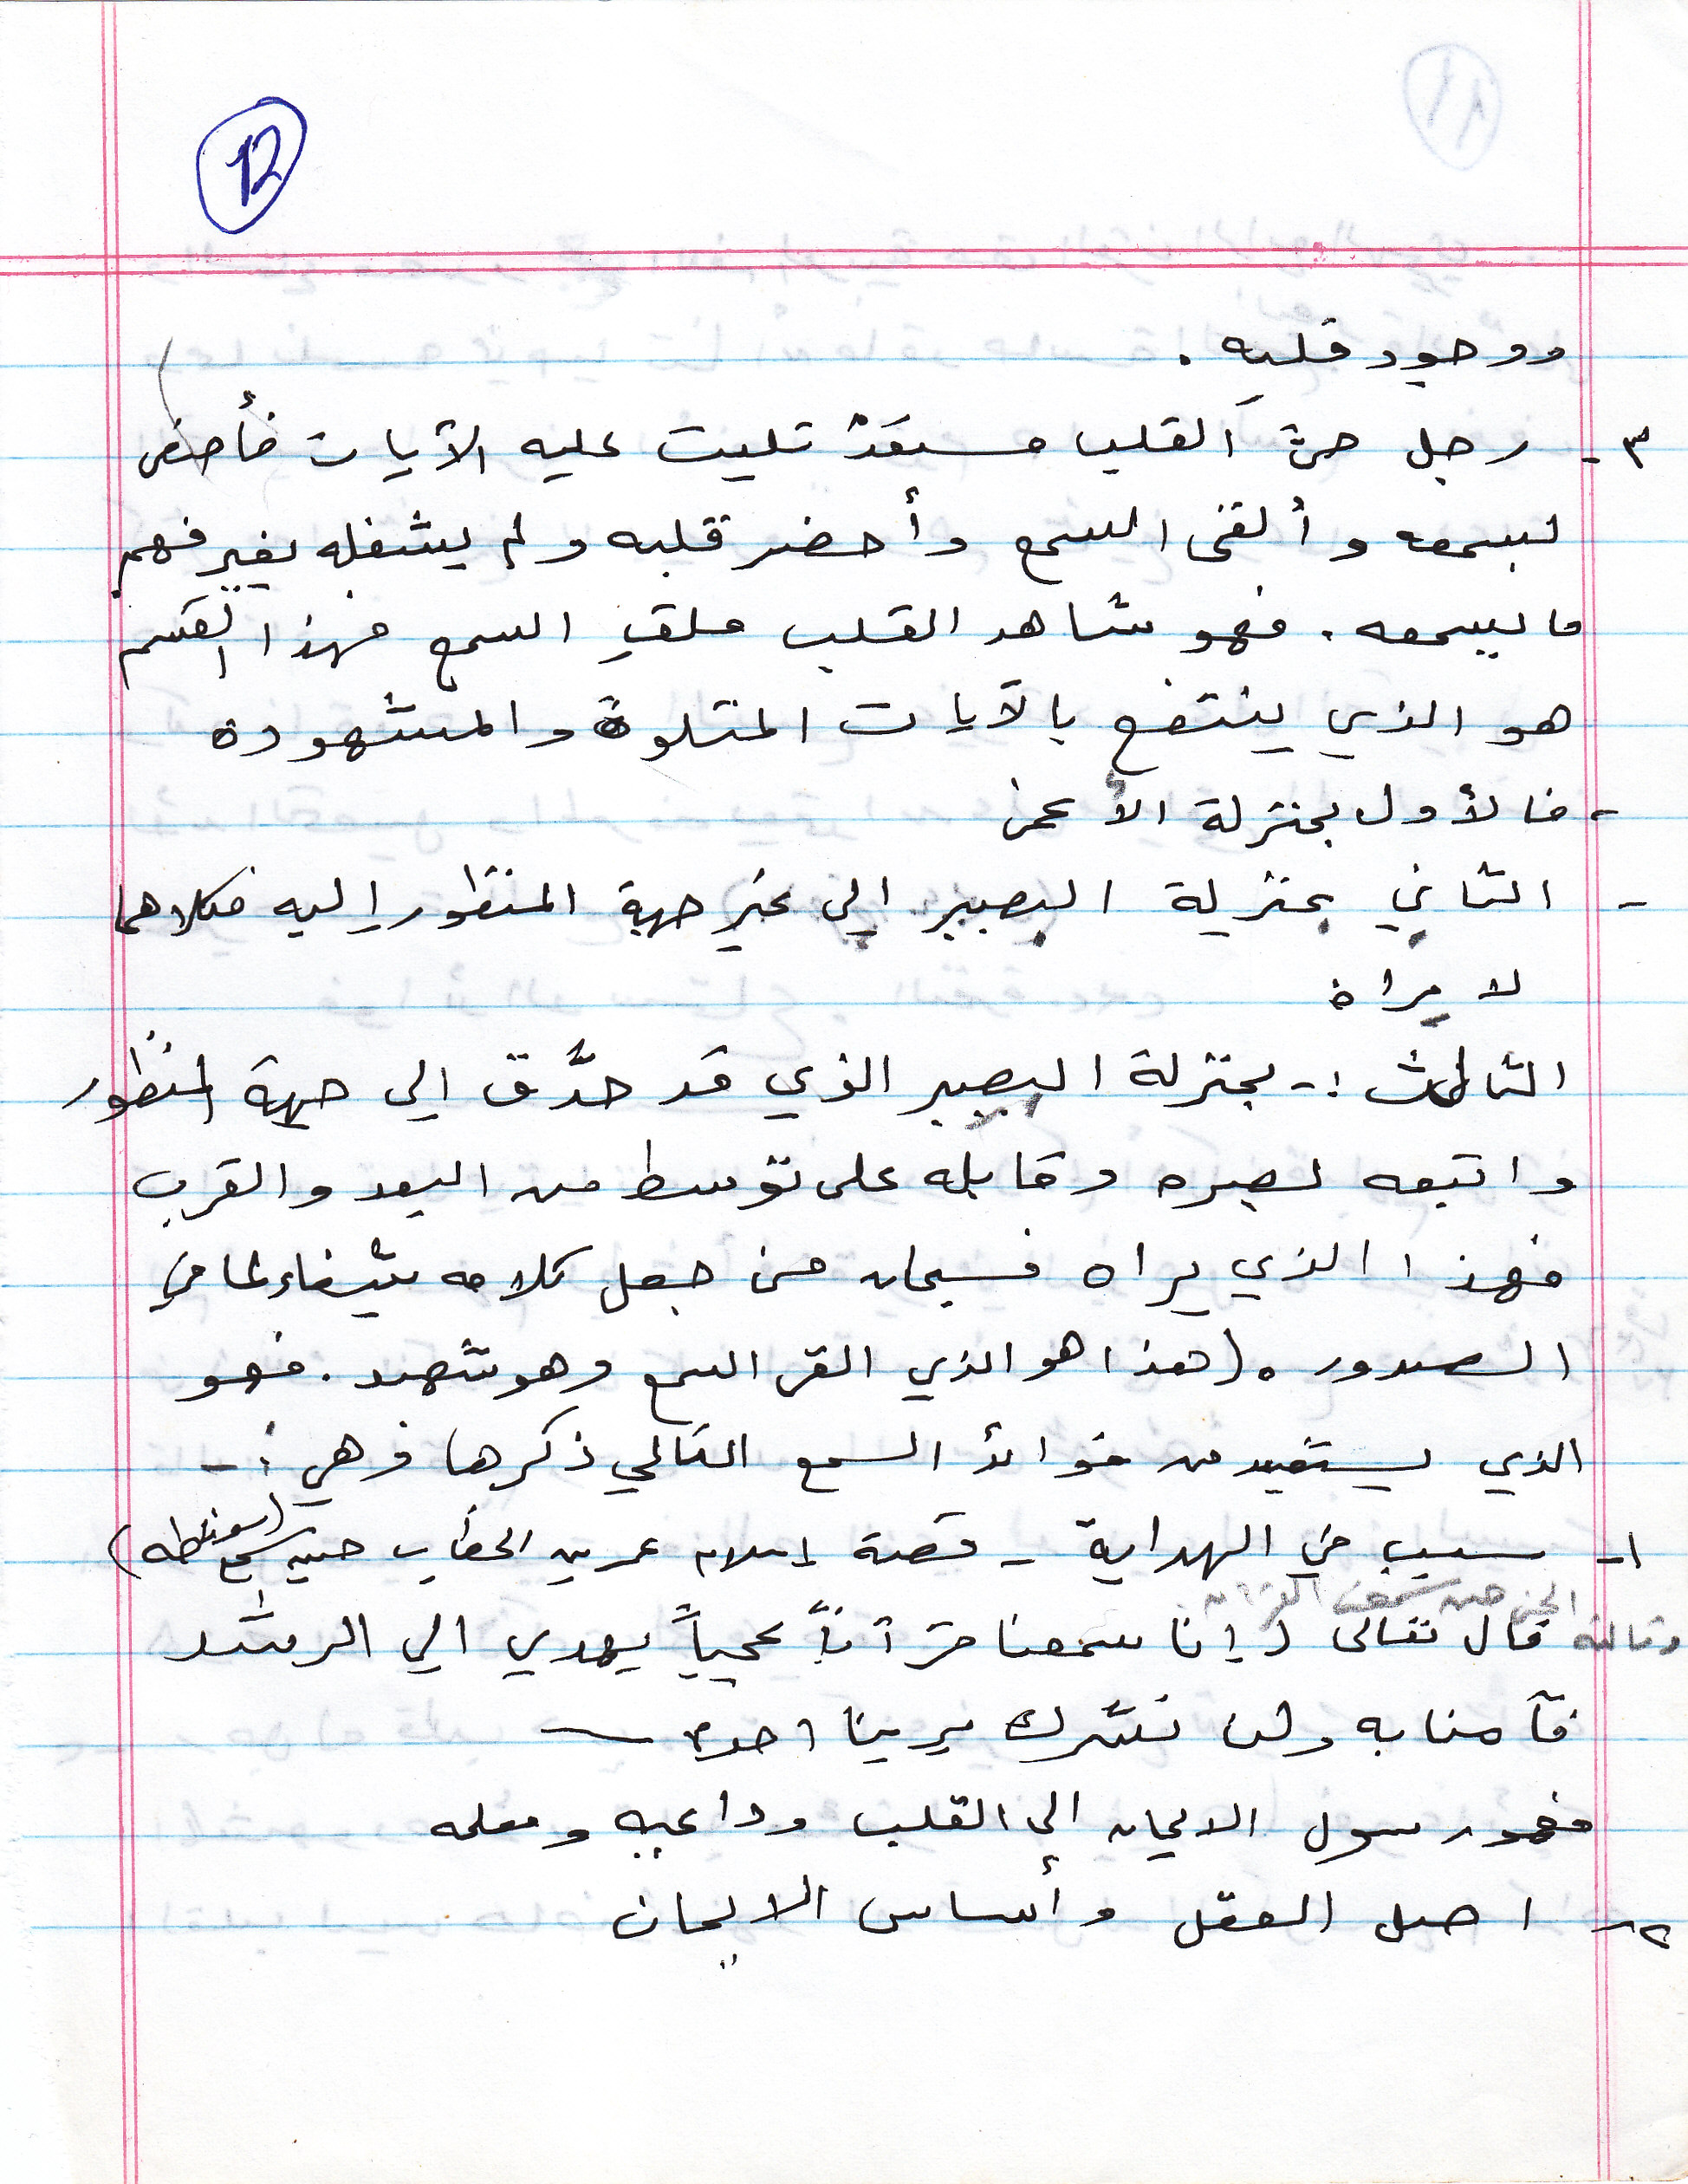 12
ووجود قلبه .
٣- رجل حيّ القلب مستعدّ تليت عليه الآيات فأصغى
لسمعه وألقى السمع وأحضر قلبه ولم يشغله بغير فهم
ما يسمعه . فهو شاهد القلب ملقِ السمع فهذا القسم
هو الذي ينتفع بالآيات المتلوة والمشهوده
- فالأول بمنزلة الأعمى
- الثاني بمنزلة البصير الى غير جهة المنظور إليه فكلاهما
لا يراه
الثالث :- بمنزلة البصير الذي قد حدَّق الى جهة المنظور
واتبعه بصره وقابله على توسط من البعد والقرب
فهذا الذي يراه فسبحان من جعل كلامه شفاء لما في
الصدور . (هذا هو الذي القى السمع وهو شهيد . فهو
الذي يستفيد من فوائد السمع التالي ذكرها وهي :-
١- سبب في الهداية - قصة اسلام عمر بن الخطاب حين سمع (سورة طه)
الجن حين سمعت القرآن
وقالت قال تعالى (إنا سمعنا قرآناً عجباً يهدي الى الرشد
فآمنا به ولن نشرك بربنا احدا)
فهو رسول الايمان الى القلب وداعيه ومعلمه
٢- اصل العقل وأساس الايمان